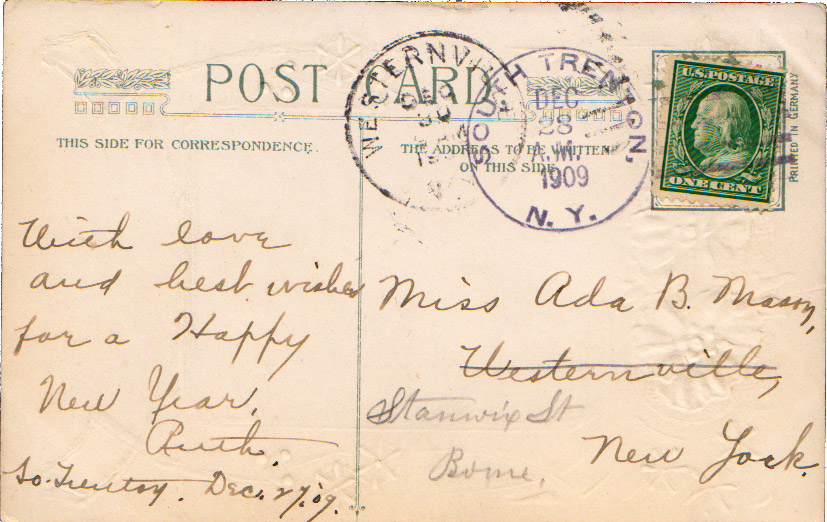 POST CARD
THIS SIDE FOR CORRESPONDENCE.
THE ADDRESS TO BE WRITTEN
ON THIS SIDE
WESTERNVILLE
SOUTH TRENTON,
DEC
28
A.M.
1909
N. Y.
U.S. POSTAGE
ONE CENT
PRINTED IN GERMANY
With love
and best wishes
for a Happy
New Year.
Ruth.
So. Trenton. Dec. 27, '09.
Miss Ada B. Mason,
Westernville,
Stanwix St
New York.
Rome,